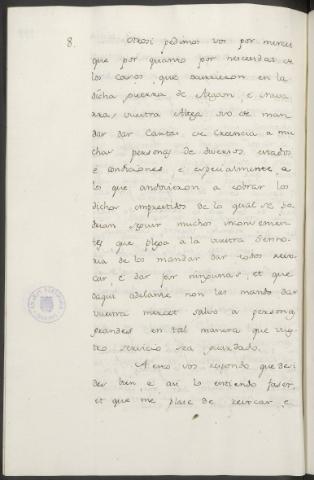 8. Otrosí pedimos vos por merced
que por quanto por necesidad de
los casos que ocurrieron en la
dicha guerra de Aragon, e Nava
rra, vuestra Alteza ovo de man
dar dar Cartas de creencia a mu
chas personas de diversos estados
é condiciones, e especialmente a
los que andovieron a cobrar los
dichos emprestidos de lo qual se po
drian seguir muchos inconvenien
tes, que plega a la vuestra Senno
ria de los mandar dar todos revo
car, é dar por ningunas, et que
daqui adelante non las mande dar
vuestra merced salvo a personas
grandes en tal manera que vues
tro servicio sea guardado.
A esto vos respondo que de
des bien, e asi lo entiendo faser,
et que me place de revocar, e